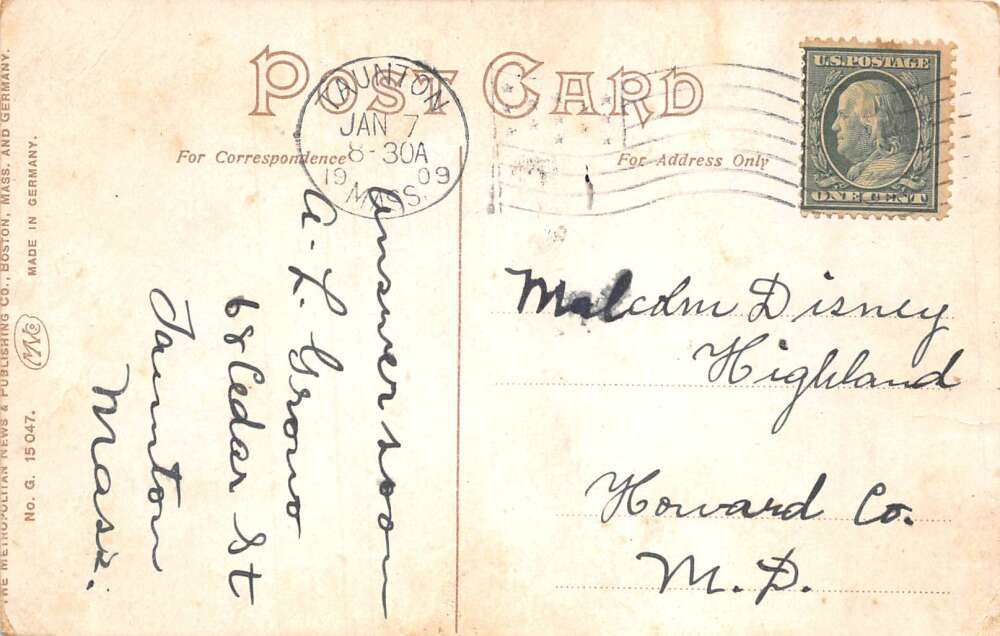 POST CARD
TAUNTON
JAN 7
8-30A
1909
MASS.
U.S. POSTAGE
ONE CENT
For Correspondence
For Address Only
answer soon
A. L. Grono
68 Cedar St
Taunton
Mass.
Malcolm Disney
Highland
Howard Co.
M. D.
THE METROPOLITAN NEWS & PUBLISHING CO., BOSTON, MASS. AND GERMANY.
No. G. 15047.
MADE IN GERMANY.